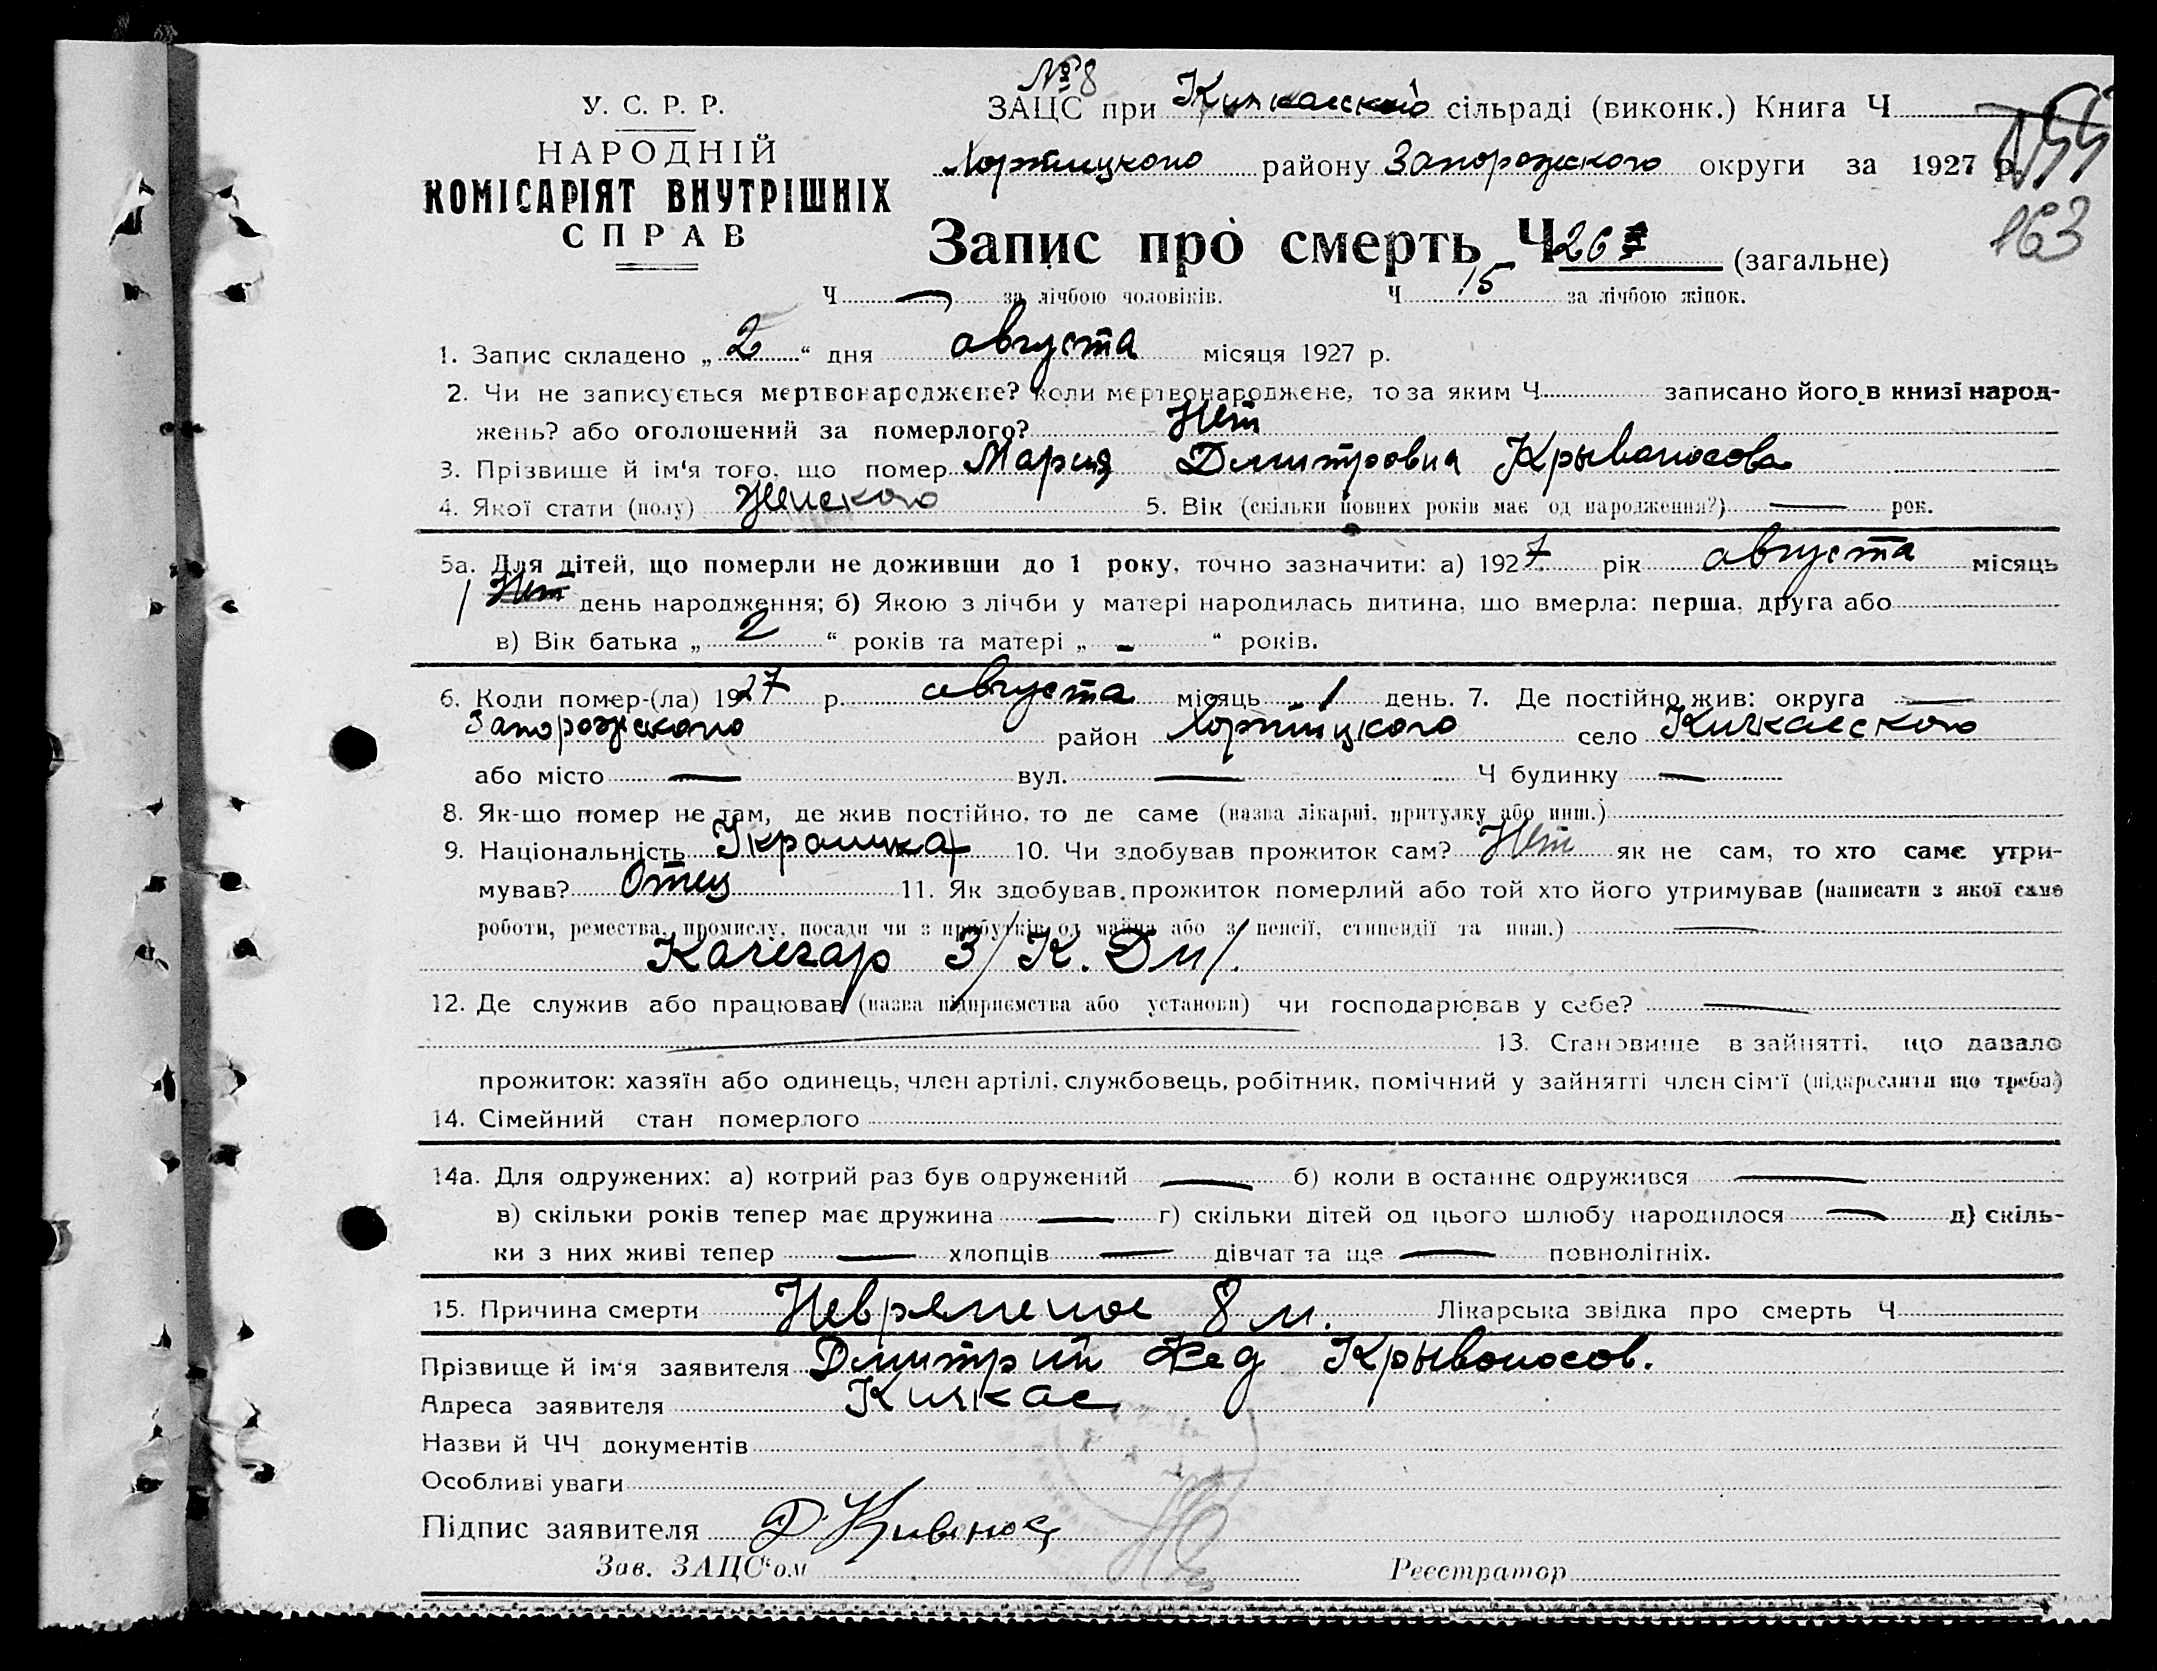 № 8
У. С. Р. Р.
НАРОДНІЙ
КОМІСАРІЯТ ВНУТРІШНІХ
СПРАВ
ЗАЦС при Кичкасской сільраді (виконк.) Книга Ч
Хортицкого району Запорожского округи за 1927 р.
163
Запис про смерть Ч 26 (загальне)
Ч — за лічбою чоловіків. Ч 15 за лічбою жінок.
1. Запис складено „ 2 “ дня августа місяця 1927 р.
2. Чи не записується мертвонароджене? коли мертвонароджене, то за яким Ч записано його в книзі народ-
жень? або оголошений за померлого? Нет
3. Прізвище й ім'я того, що помер Мария Дмитровна Крывоносова
4. Якої стати (полу) Женского 5. Вік (скільки повних років має од народження?) — рок.
5а. Для дітей, що померли не доживши до 1 року, точно зазначити: а) 1927 рік августа місяць
1 Нет день народження; б) Якою з лічби у матері народилась дитина, що вмерла: перша, друга або
в) Вік батька „ 2 “ років та матері „ - “ років.
6. Коли помер-(ла) 1927 р. августа місяць 1 день. 7. Де постійно жив: округа —
Запорожского район Хортицкого село Кичкасского
або місто — вул. — Ч будинку —
8. Як-що помер не там, де жив постійно, то де саме (назва лікарні, притулку або инш.)
9. Національність Украинка 10. Чи здобував прожиток сам? Нет як не сам, то хто саме утри-
мував? Отец 11. Як здобував прожиток померлий або той хто його утримував (написати з якої саме
роботи, ремества, промислу, посади чи з прибутків од майна або з пенсії, стипендії та инш.) —
Качегар З/К. Дм/.
12. Де служив або працював (назва підприємства або установи) чи господарював у себе? —
13. Становище в зайнятті, що давало
прожиток: хазяїн або одинець, член артілі, службовець, робітник, помічний у зайнятті член сім'ї (підкреслити що треба)
14. Сімейний стан померлого
14а. Для одружених: а) котрий раз був одружений — б) коли в останнє одружився —
в) скільки років тепер має дружина — г) скільки дітей од цього шлюбу народилося — д) скіль-
ки з них живі тепер — хлопців — дівчат та ще — повнолітніх.
15. Причина смерти Невременное 8 м. Лікарська звідка про смерть Ч
Прізвище й ім'я заявителя Дмитрий Фед Крывоносов.
Адреса заявителя Кичкас
Назви й ЧЧ документів
Особливі уваги
Підпис заявителя Д
Зав. ЗАЦС“ом Реєстратор